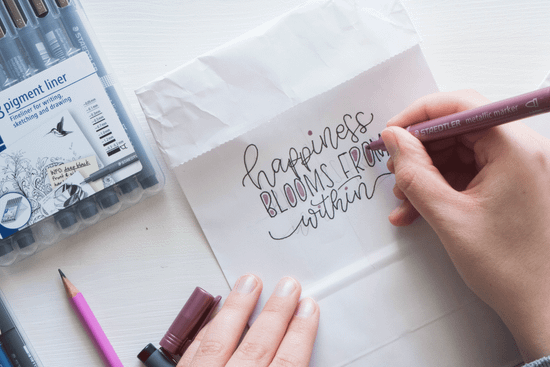 pigment liner
Fineliner for writing,
sketching and drawing
happiness
BLOOMS FROM
within
STAEDTLER metallic marker